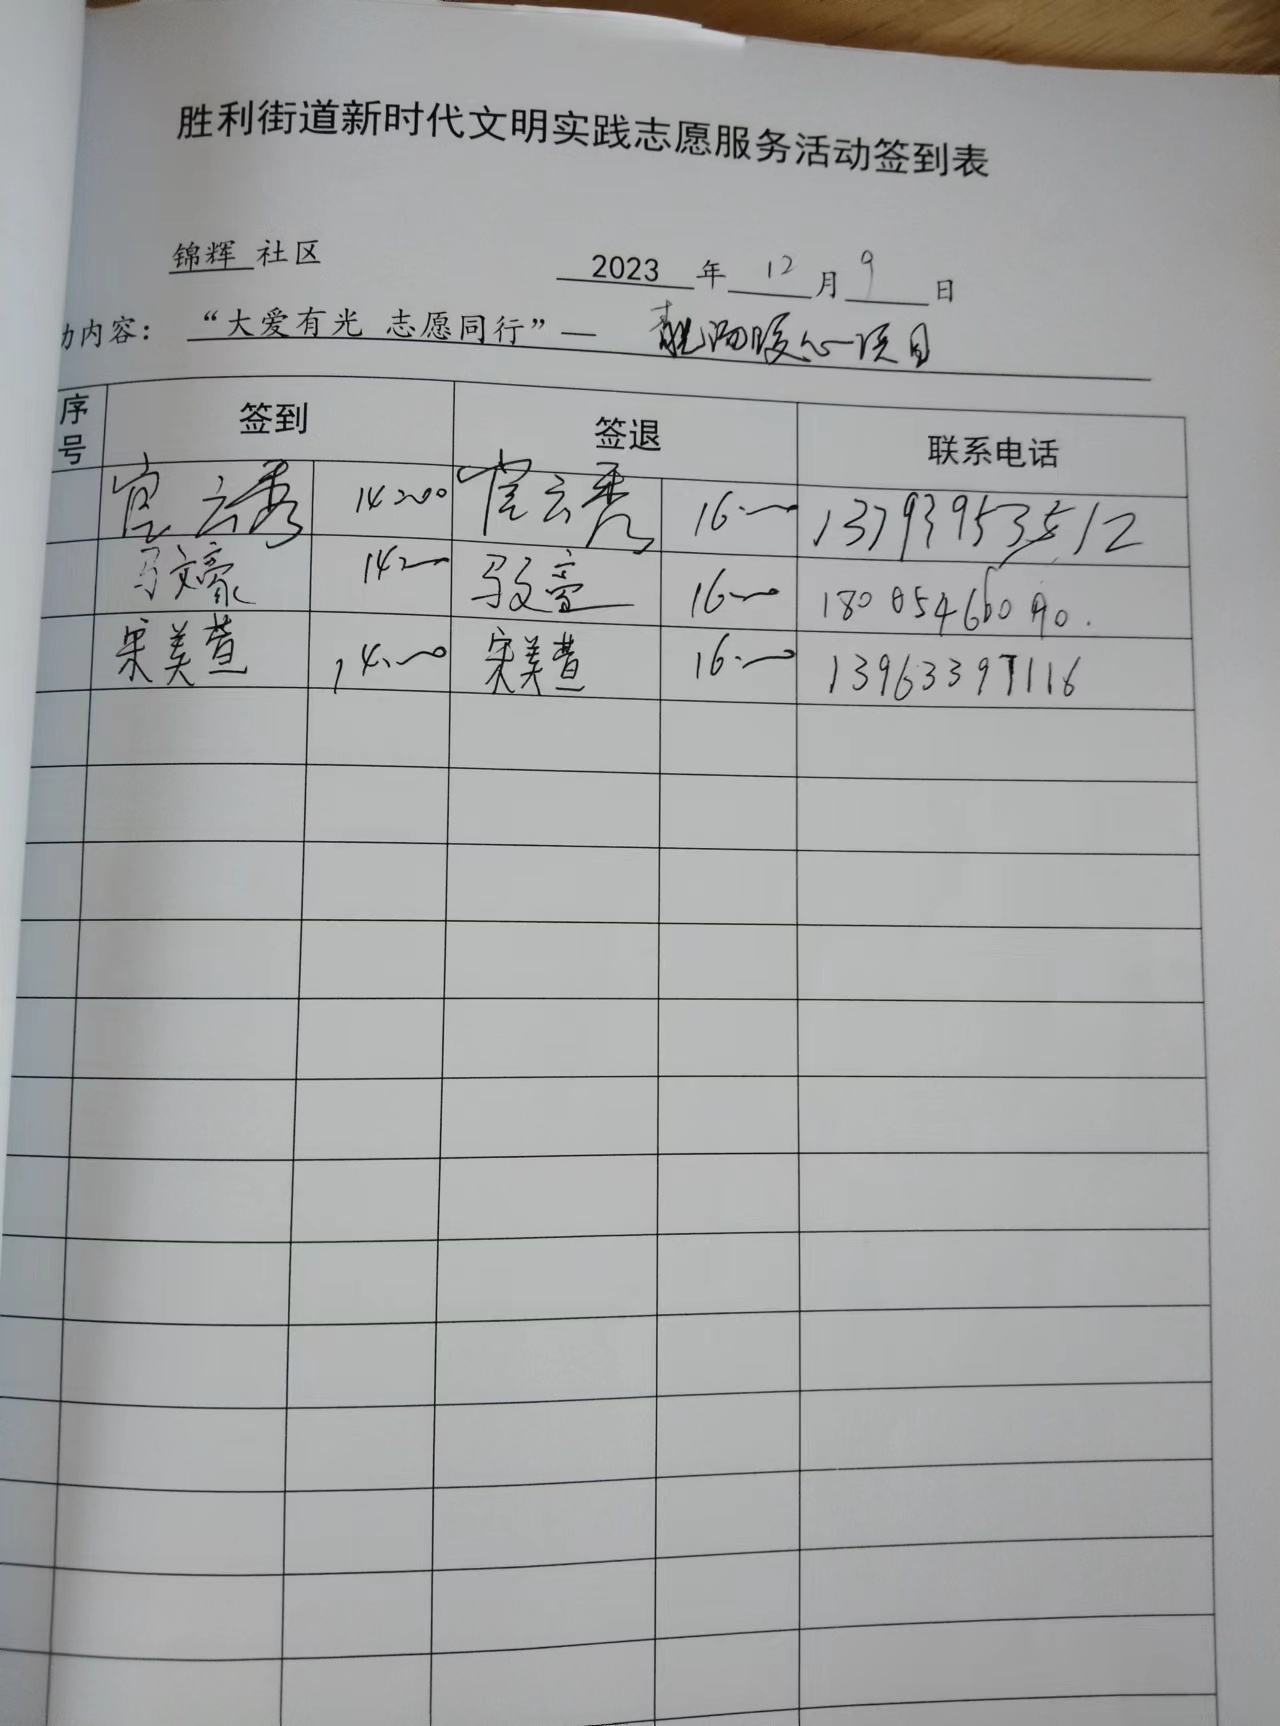 胜利街道新时代文明实践志愿服务活动签到表
锦辉 社区 2023 年 12 月 9 日
动内容：“大爱有光 志愿同行”— 暖心项目
序号 签到 签退 联系电话
官云秀 14:00 官云秀 16:00 13793953512
马文豪 14:00 马文豪 16:00
宋美萱 14:00 宋美萱 16:00 13963397116